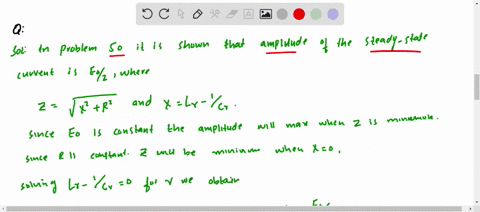 Q:
Sol: In problem 50 it is shown that amplitude of the steady-state
current is E0/z, where
Z = √X²+R² and X = Lr - 1/Cr.
since E0 is constant the amplitude will max when Z is minimum.
since R is constant. Z will be minimum when X=0,
solving Lr - 1/Cr = 0 for r we obtain